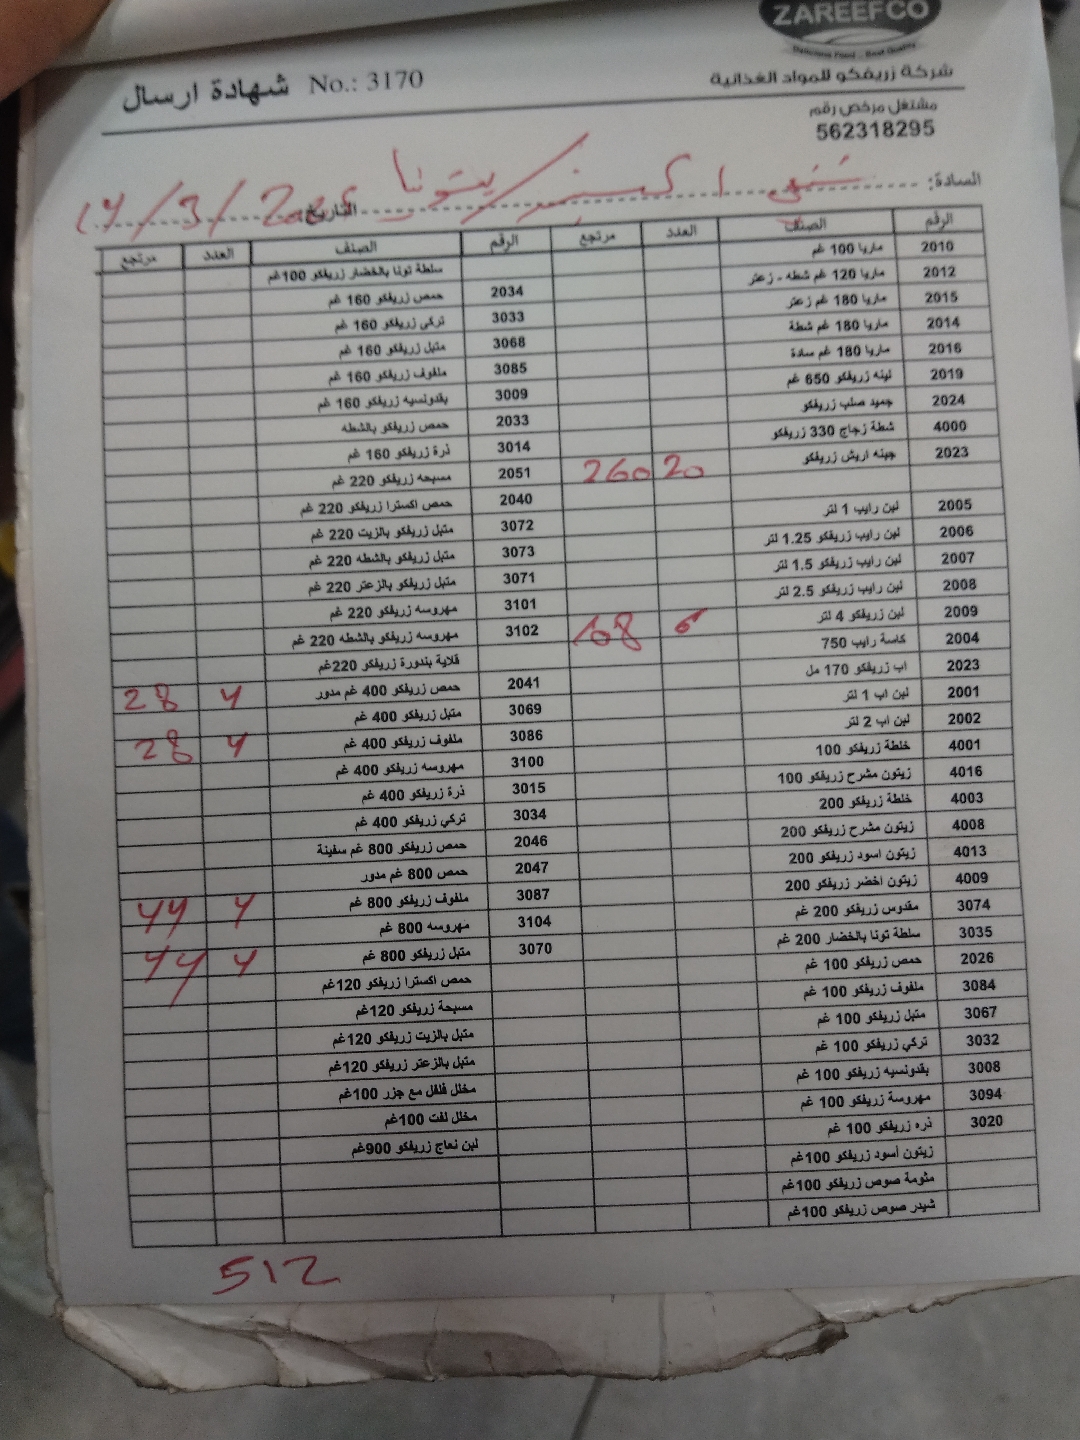 ZAREEFCO
Delicious Food - Best Quality
شركة زريفكو للمواد الغذائية
شهادة ارسال No.: 3170
مشتغل مرخص رقم
562318295
السادة:
التاريخ:
الرقم الصنف العدد مرتجع الرقم الصنف العدد مرتجع
2010 ماريا 100 غم سلطة تونا بالخضار زريفكو 100غم
2012 ماريا 120 غم شطه - زعتر 2034 حمص زريفكو 160 غم
2015 ماريا 180 غم زعتر 3033 تركي زريفكو 160 غم
2014 ماريا 180 غم شطة 3068 متبل زريفكو 160 غم
2016 ماريا 180 غم سادة 3085 ملفوف زريفكو 160 غم
2019 لبنه زريفكو 650 غم 3009 بقدونسيه زريفكو 160 غم
2024 جميد صلب زريفكو 2033 حمص زريفكو بالشطه
4000 شطة زجاج 330 زريفكو 3014 ذرة زريفكو 160 غم
2023 جبنه اريش زريفكو 20 260 2051 مسبحه زريفكو 220 غم
2040 حمص اكسترا زريفكو 220 غم
2005 لبن رايب 1 لتر 3072 متبل زريفكو بالزيت 220 غم
2006 لبن رايب زريفكو 1.25 لتر 3073 متبل زريفكو بالشطه 220 غم
2007 لبن رايب زريفكو 1.5 لتر 3071 متبل زريفكو بالزعتر 220 غم
2008 لبن رايب زريفكو 2.5 لتر 3101 مهروسه زريفكو 220 غم
2009 لبن زريفكو 4 لتر 6 108 3102 مهروسه زريفكو بالشطه 220 غم
2004 كاسة رايب 750 قلاية بندورة زريفكو 220غم
2023 اب زريفكو 170 مل 2041 حمص زريفكو 400 غم مدور 4 28
2001 لبن اب 1 لتر 3069 متبل زريفكو 400 غم
2002 لبن اب 2 لتر 3086 ملفوف زريفكو 400 غم 4 28
4001 خلطة زريفكو 100 3100 مهروسه زريفكو 400 غم
4016 زيتون مشرح زريفكو 100 3015 ذرة زريفكو 400 غم
4003 خلطة زريفكو 200 3034 تركي زريفكو 400 غم
4008 زيتون مشرح زريفكو 200 2046 حمص زريفكو 800 غم سفينة
4013 زيتون اسود زريفكو 200 2047 حمص 800 غم مدور
4009 زيتون اخضر زريفكو 200 3087 ملفوف زريفكو 800 غم 4 44
3074 مقدوس زريفكو 200 غم 3104 مهروسه 800 غم
3035 سلطة تونا بالخضار 200 غم 3070 متبل زريفكو 800 غم 4 44
2026 حمص زريفكو 100 غم حمص اكسترا زريفكو 120غم
3084 ملفوف زريفكو 100 غم مسبحة زريفكو 120غم
3067 متبل زريفكو 100 غم متبل بالزيت زريفكو 120غم
3032 تركي زريفكو 100 غم متبل بالزعتر زريفكو 120غم
3008 بقدونسيه زريفكو 100 غم مخلل فلفل مع جزر 100غم
3094 مهروسة زريفكو 100 غم مخلل لفت 100غم
3020 ذره زريفكو 100 غم لبن نعاج زريفكو 900غم
زيتون أسود زريفكو 100غم
مثومة صوص زريفكو 100غم
شيدر صوص زريفكو 100غم
512